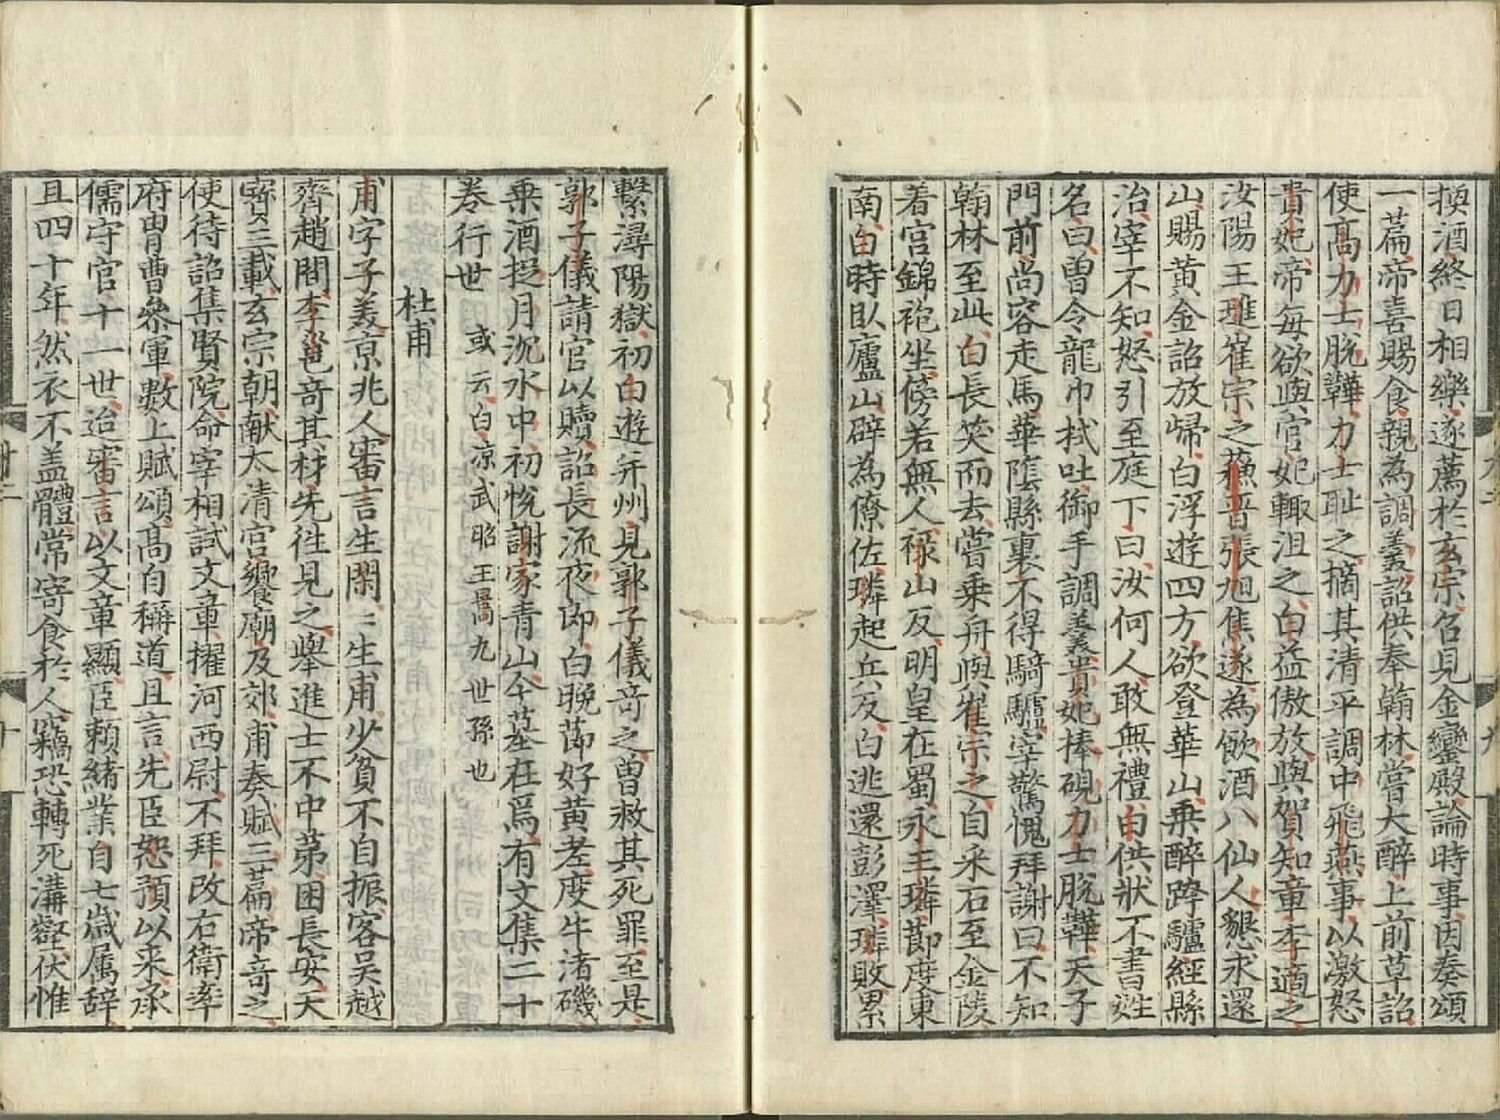 換酒終日相樂遂薦於玄宗召見金鑾殿論時事因奏頌
一篇帝喜賜食親為調羹詔供奉翰林嘗大醉上前草詔
使髙力士脫鞾力士耻之摘其清平調中飛燕事以激怒
貴妃帝每欲與官妃輙沮之白益傲放與賀知章李適之
汝陽王璡崔宗之蘓晋張旭焦遂為飲酒八仙人懇求還
山賜黃金詔放歸白浮遊四方欲登華山乗醉跨驢經縣
治宰不知怒引至庭下曰汝何人敢無禮白供狀不書姓
名曰曽令龍巾拭吐御手調羹貴妃捧硯力士脫鞾天子
門前尚容走馬華隂縣裏不得騎驢宰驚愧拜謝曰不知
翰林至此白長笑而去嘗乗舟與崔宗之自采石至金陵
着宮錦袍坐傍若無人禄山反明皇在蜀永王璘節度東
南白時臥廬山辟為僚佐璘起兵反白逃還彭澤璘敗累
繫潯陽獄初白遊并州見郭子儀竒之曽救其死罪至是
郭子儀請官以贖詔長流夜郎白晚節好黃老度牛渚磯
乗酒捉月沉水中初悅謝家青山今墓在焉有文集二十
卷行世　或云白凉武昭王暠九世孫也
杜甫
甫字子美京兆人審言生閑〻生甫少貧不自振客吳越
齊趙間李邕竒其材先往見之舉進士不中苐困長安天
寳三載玄宗朝献太清宮饗廟及郊甫奏賦三篇帝竒之
使待詔集賢院命宰相試文章擢河西尉不拜改右衛率
府胄曹叅軍數上賦頌髙自稱道且言先臣恕預以来承
儒守官十一世迨審言以文章顯臣頼緒業自七歲屬辞
且四十年然衣不盖體常寄食於人竊恐轉死溝壑伏惟